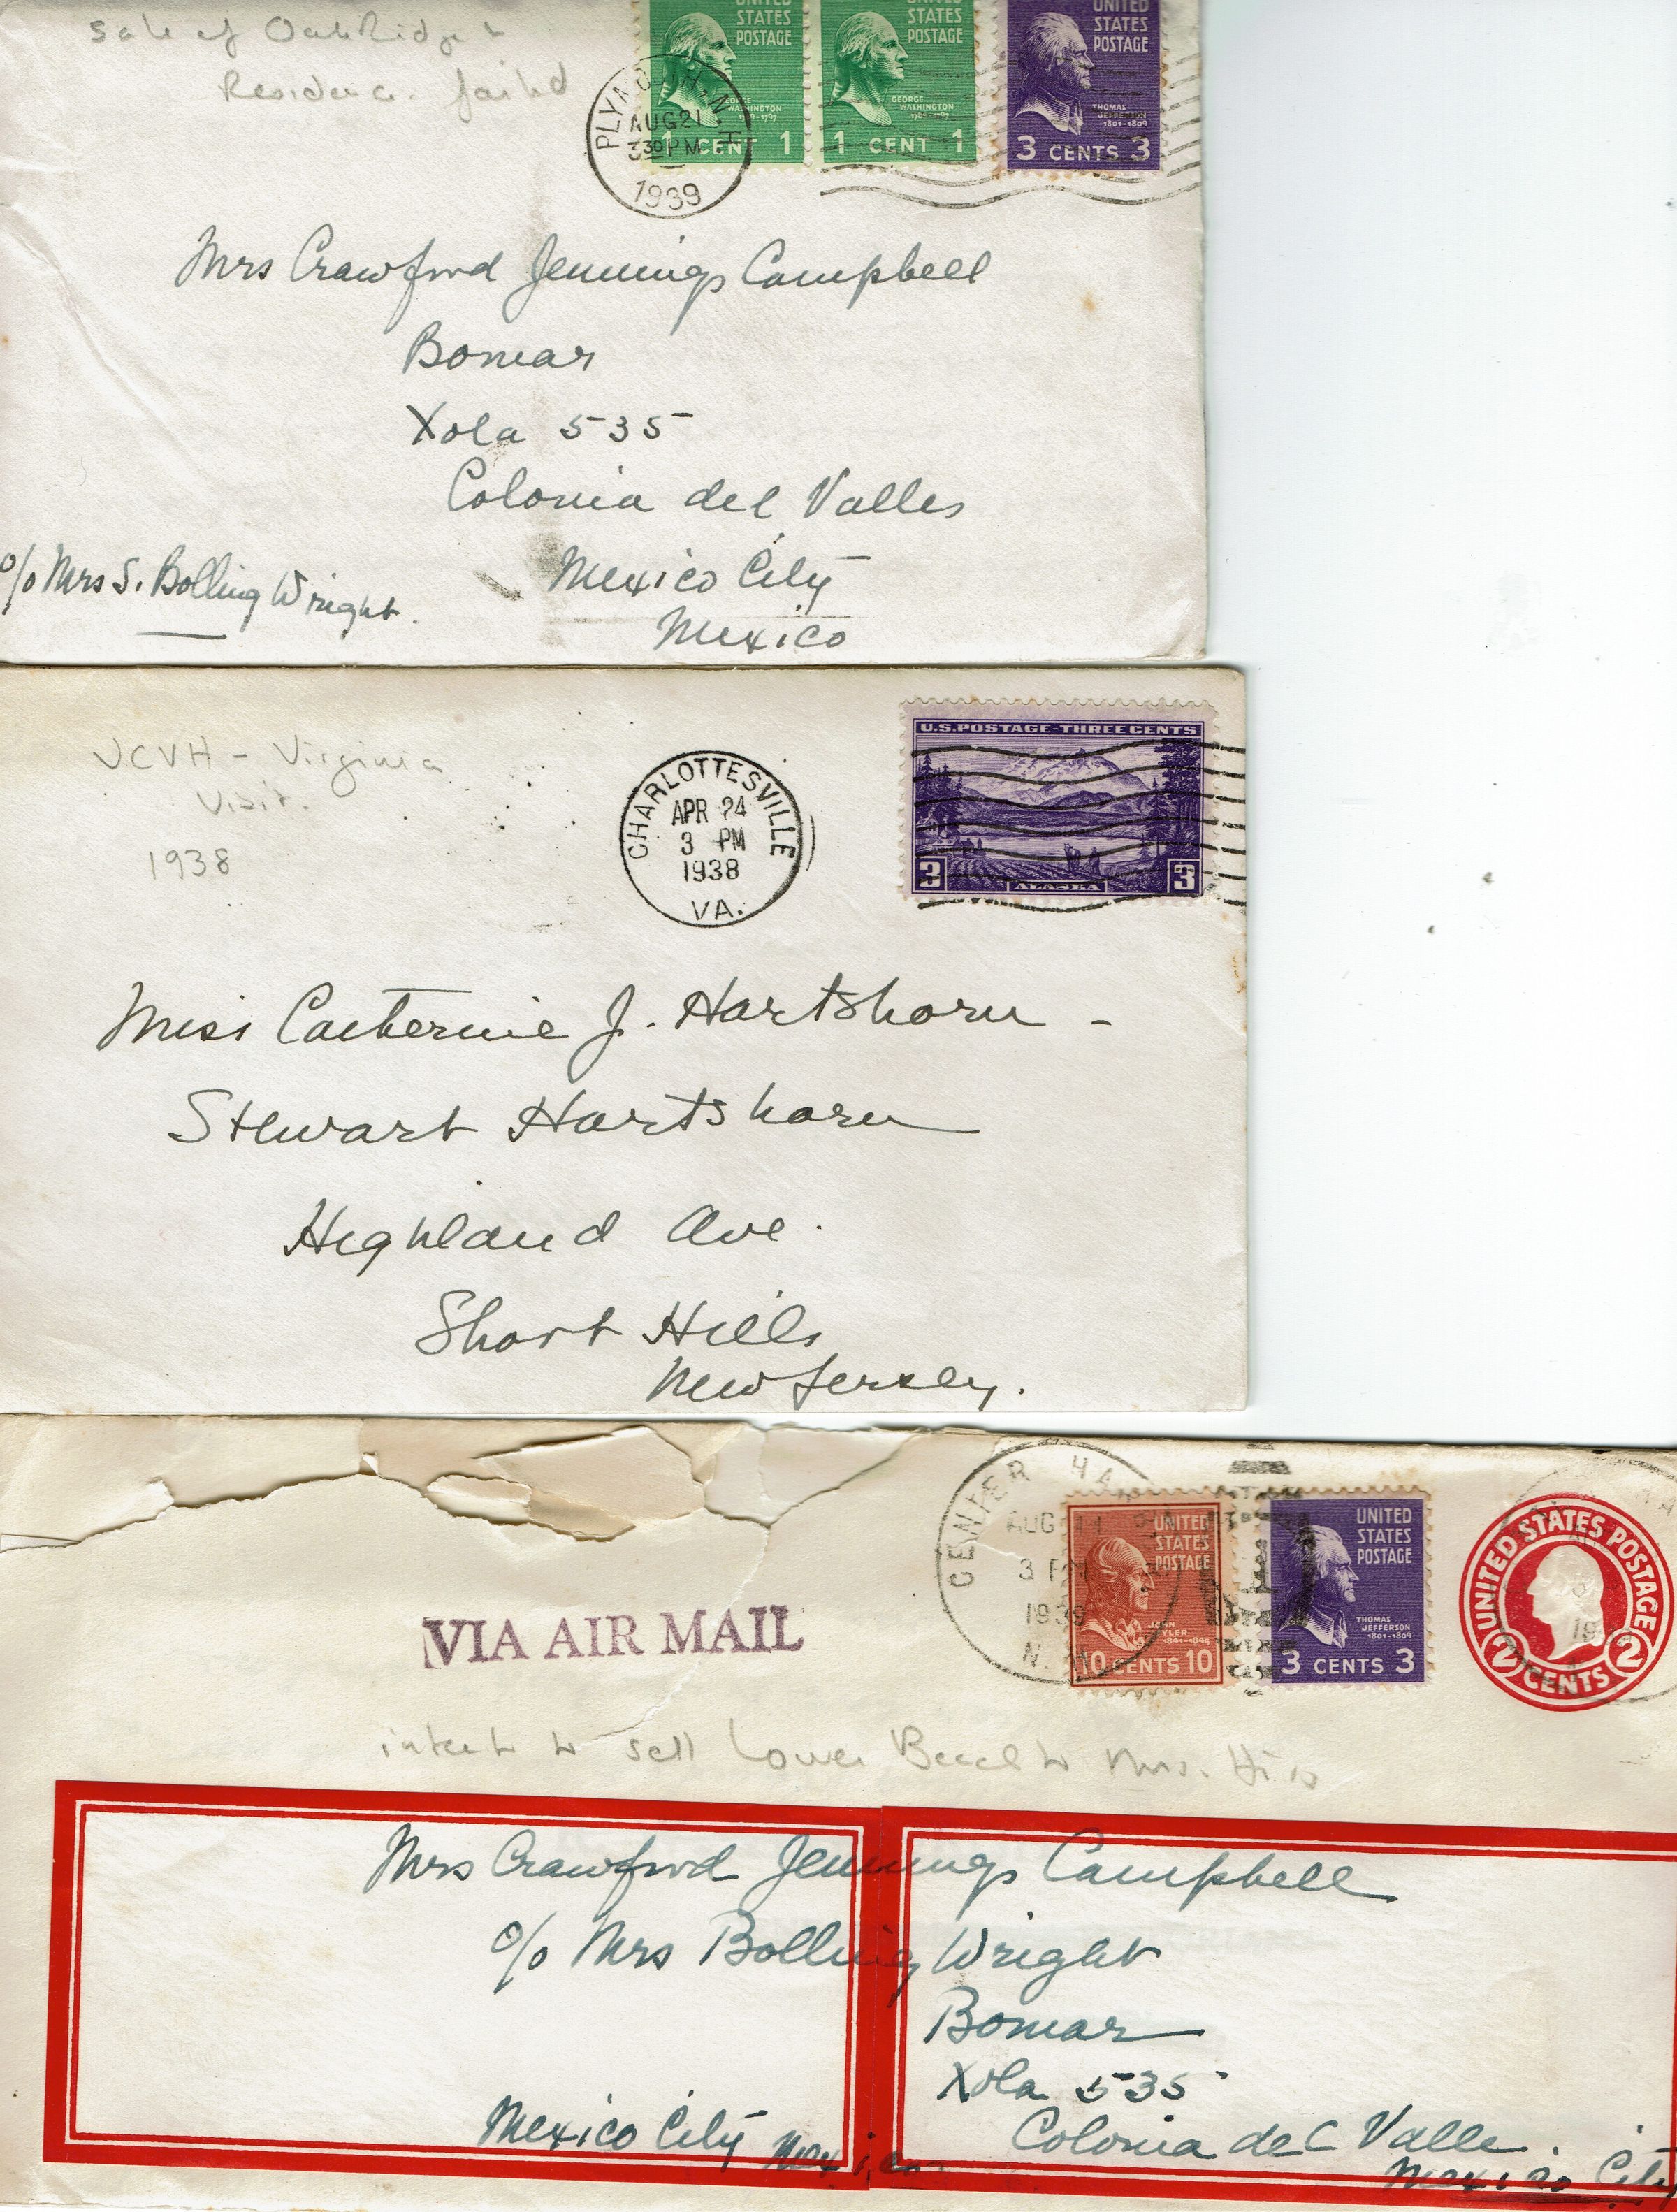 Sale of OakRidge &
Residence. failed
UNITED
STATES
POSTAGE
GEORGE
WASHINGTON
1789-1797
1 CENT 1
UNITED
STATES
POSTAGE
GEORGE
WASHINGTON
1789-1797
1 CENT 1
UNITED
STATES
POSTAGE
THOMAS
JEFFERSON
1801-1809
3 CENTS 3
PLYMOUTH, N.H.
AUG 21
3 30 PM
1939
Mrs Crawford Jennings Campbell
Bomar
Xola 535
Colonia del Valles
Mexico City
Mexico
c/o Mrs S. Bolling Wright.
VCVH - Virginia
Visit.
1938
CHARLOTTESVILLE
APR 24
3 PM
1938
VA.
U.S. POSTAGE-THREE CENTS
3 ALASKA 3
Miss Catherine J. Hartshorn -
Stewart Hartshorn
Highland Ave.
Short Hills
New Jersey.
CENTER HA
AUG
3 PM
1939
N.H.
UNITED
STATES
POSTAGE
JOHN
TYLER
1841-1845
10 CENTS 10
UNITED
STATES
POSTAGE
THOMAS
JEFFERSON
1801-1809
3 CENTS 3
UNITED STATES POSTAGE
2 CENTS 2
VIA AIR MAIL
intent to sell Lower Beach to Mrs.
Mrs Crawford Jennings Campbell
c/o Mrs Bolling Wright
Bomar
Xola 535
Colonia del Valle.
Mexico City Mexico
Mexico City